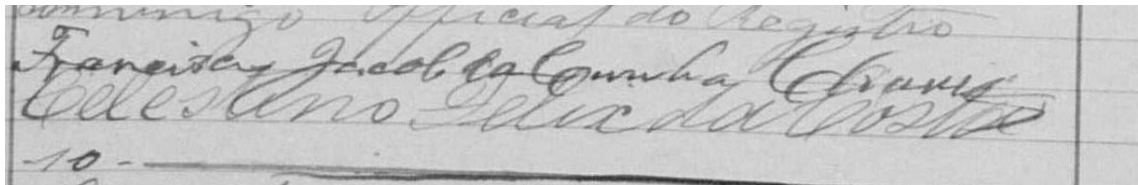 Domingo Official do Registro
Francisco Jacob da Cunha Chaves
Celestino Felix da Costa
-10-